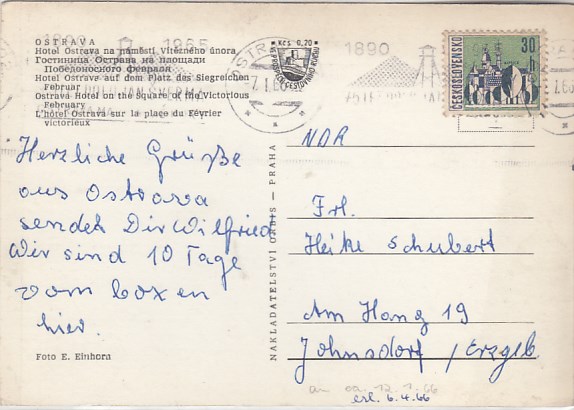 OSTRAVA
Hotel Ostrava na náměstí Vítězného února
Гостиница Острава на площади
Победоносного Февраля
Hotel Ostrava auf dem Platz des Siegreichen
Februar
Ostrava Hotel on the Square of the Victorious
February
L'hôtel Ostrava sur la place du Février
victorieux
1890 1965
Kčs 0,20
1890
30
h
ČESKOSLOVENSKO
NDR
Herzliche Grüße
aus Ostrava
sendet Dir Wilfried
Wir sind 10 Tage
vom boxen
hier.
Frl.
Heike Schubert
Am Hang 19
Johnsdorf / Erzgeb
NAKLADATELSTVÍ ORBIS — PRAHA
Foto E. Einhorn
12.1.66
erl. 6.4.66